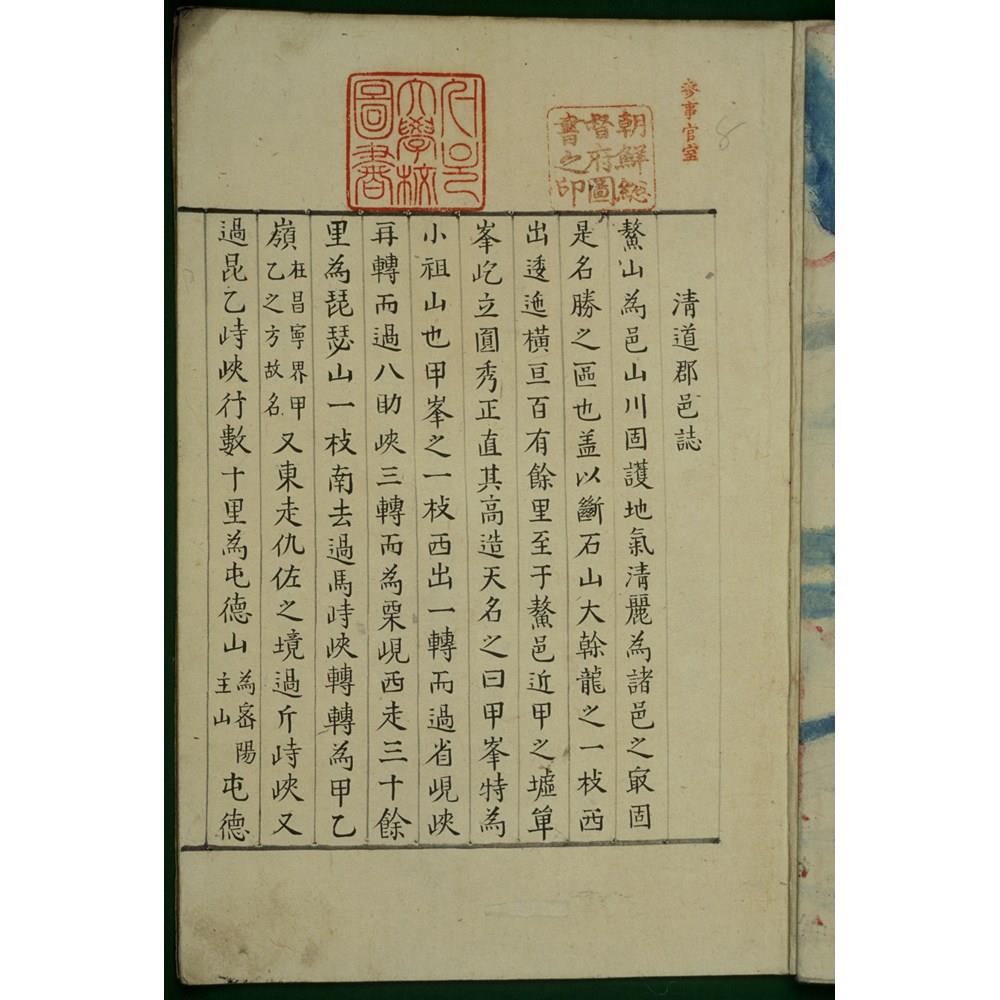 參事官室
8
朝鮮総
督府圖
書之印
서울
大學校
圖書
清道郡邑誌
鰲山為邑山川固護地氣清麗為諸邑之㝡固
是名勝之區也盖以斷石山大榦龍之一枝西
出逶迤橫亘百有餘里至于鰲邑近甲之墟単
峯屹立圓秀正直其高造天名之曰甲峯特為
小祖山也甲峯之一枝西出一轉而過省峴峽
再轉而過八助峽三轉而為栗峴西走三十餘
里為琵瑟山一枝南去過馬峙峽轉轉為甲乙
嶺在昌寧界甲乙之方故名又東走仇佐之境過斤峙峽又
過昆乙峙峽行數十里為屯德山為密陽主山屯德